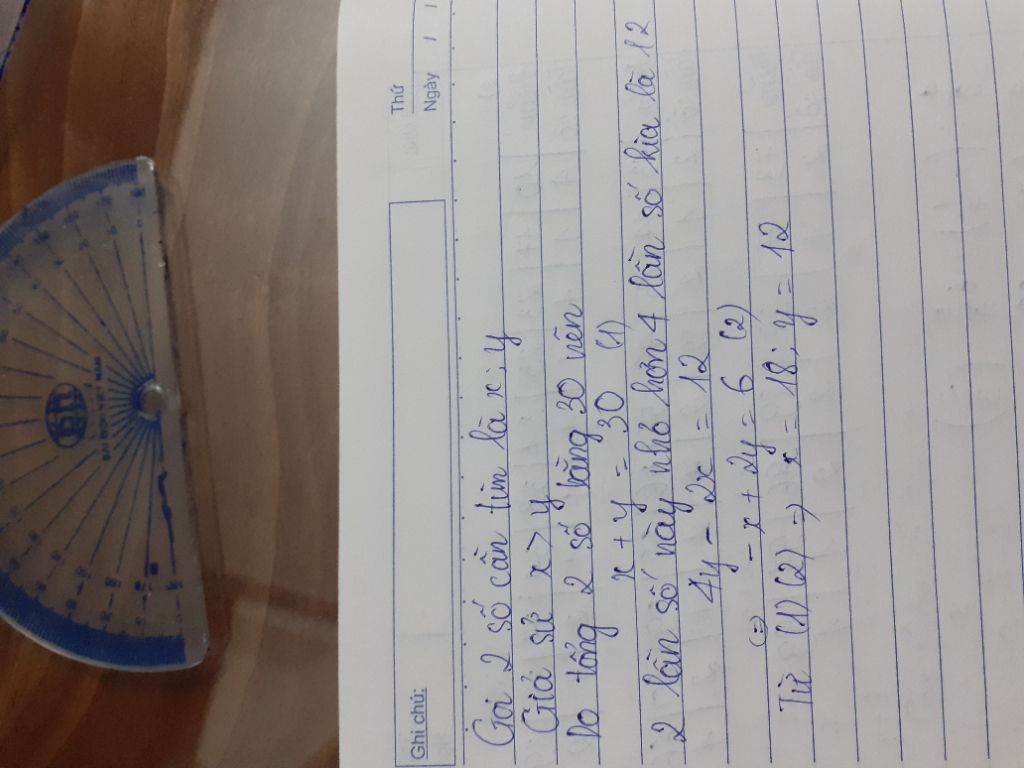 Ghi chú:
Thứ
Ngày / /
Gọi 2 số cần tìm là x; y
Giả sử x > y
Do tổng 2 số bằng 30 nên
x + y = 30 (1)
2 lần số này nhỏ hơn 4 lần số kia là 12
4y - 2x = 12
(=) - x + 2y = 6 (2)
Từ (1) (2) => x = 18; y = 12